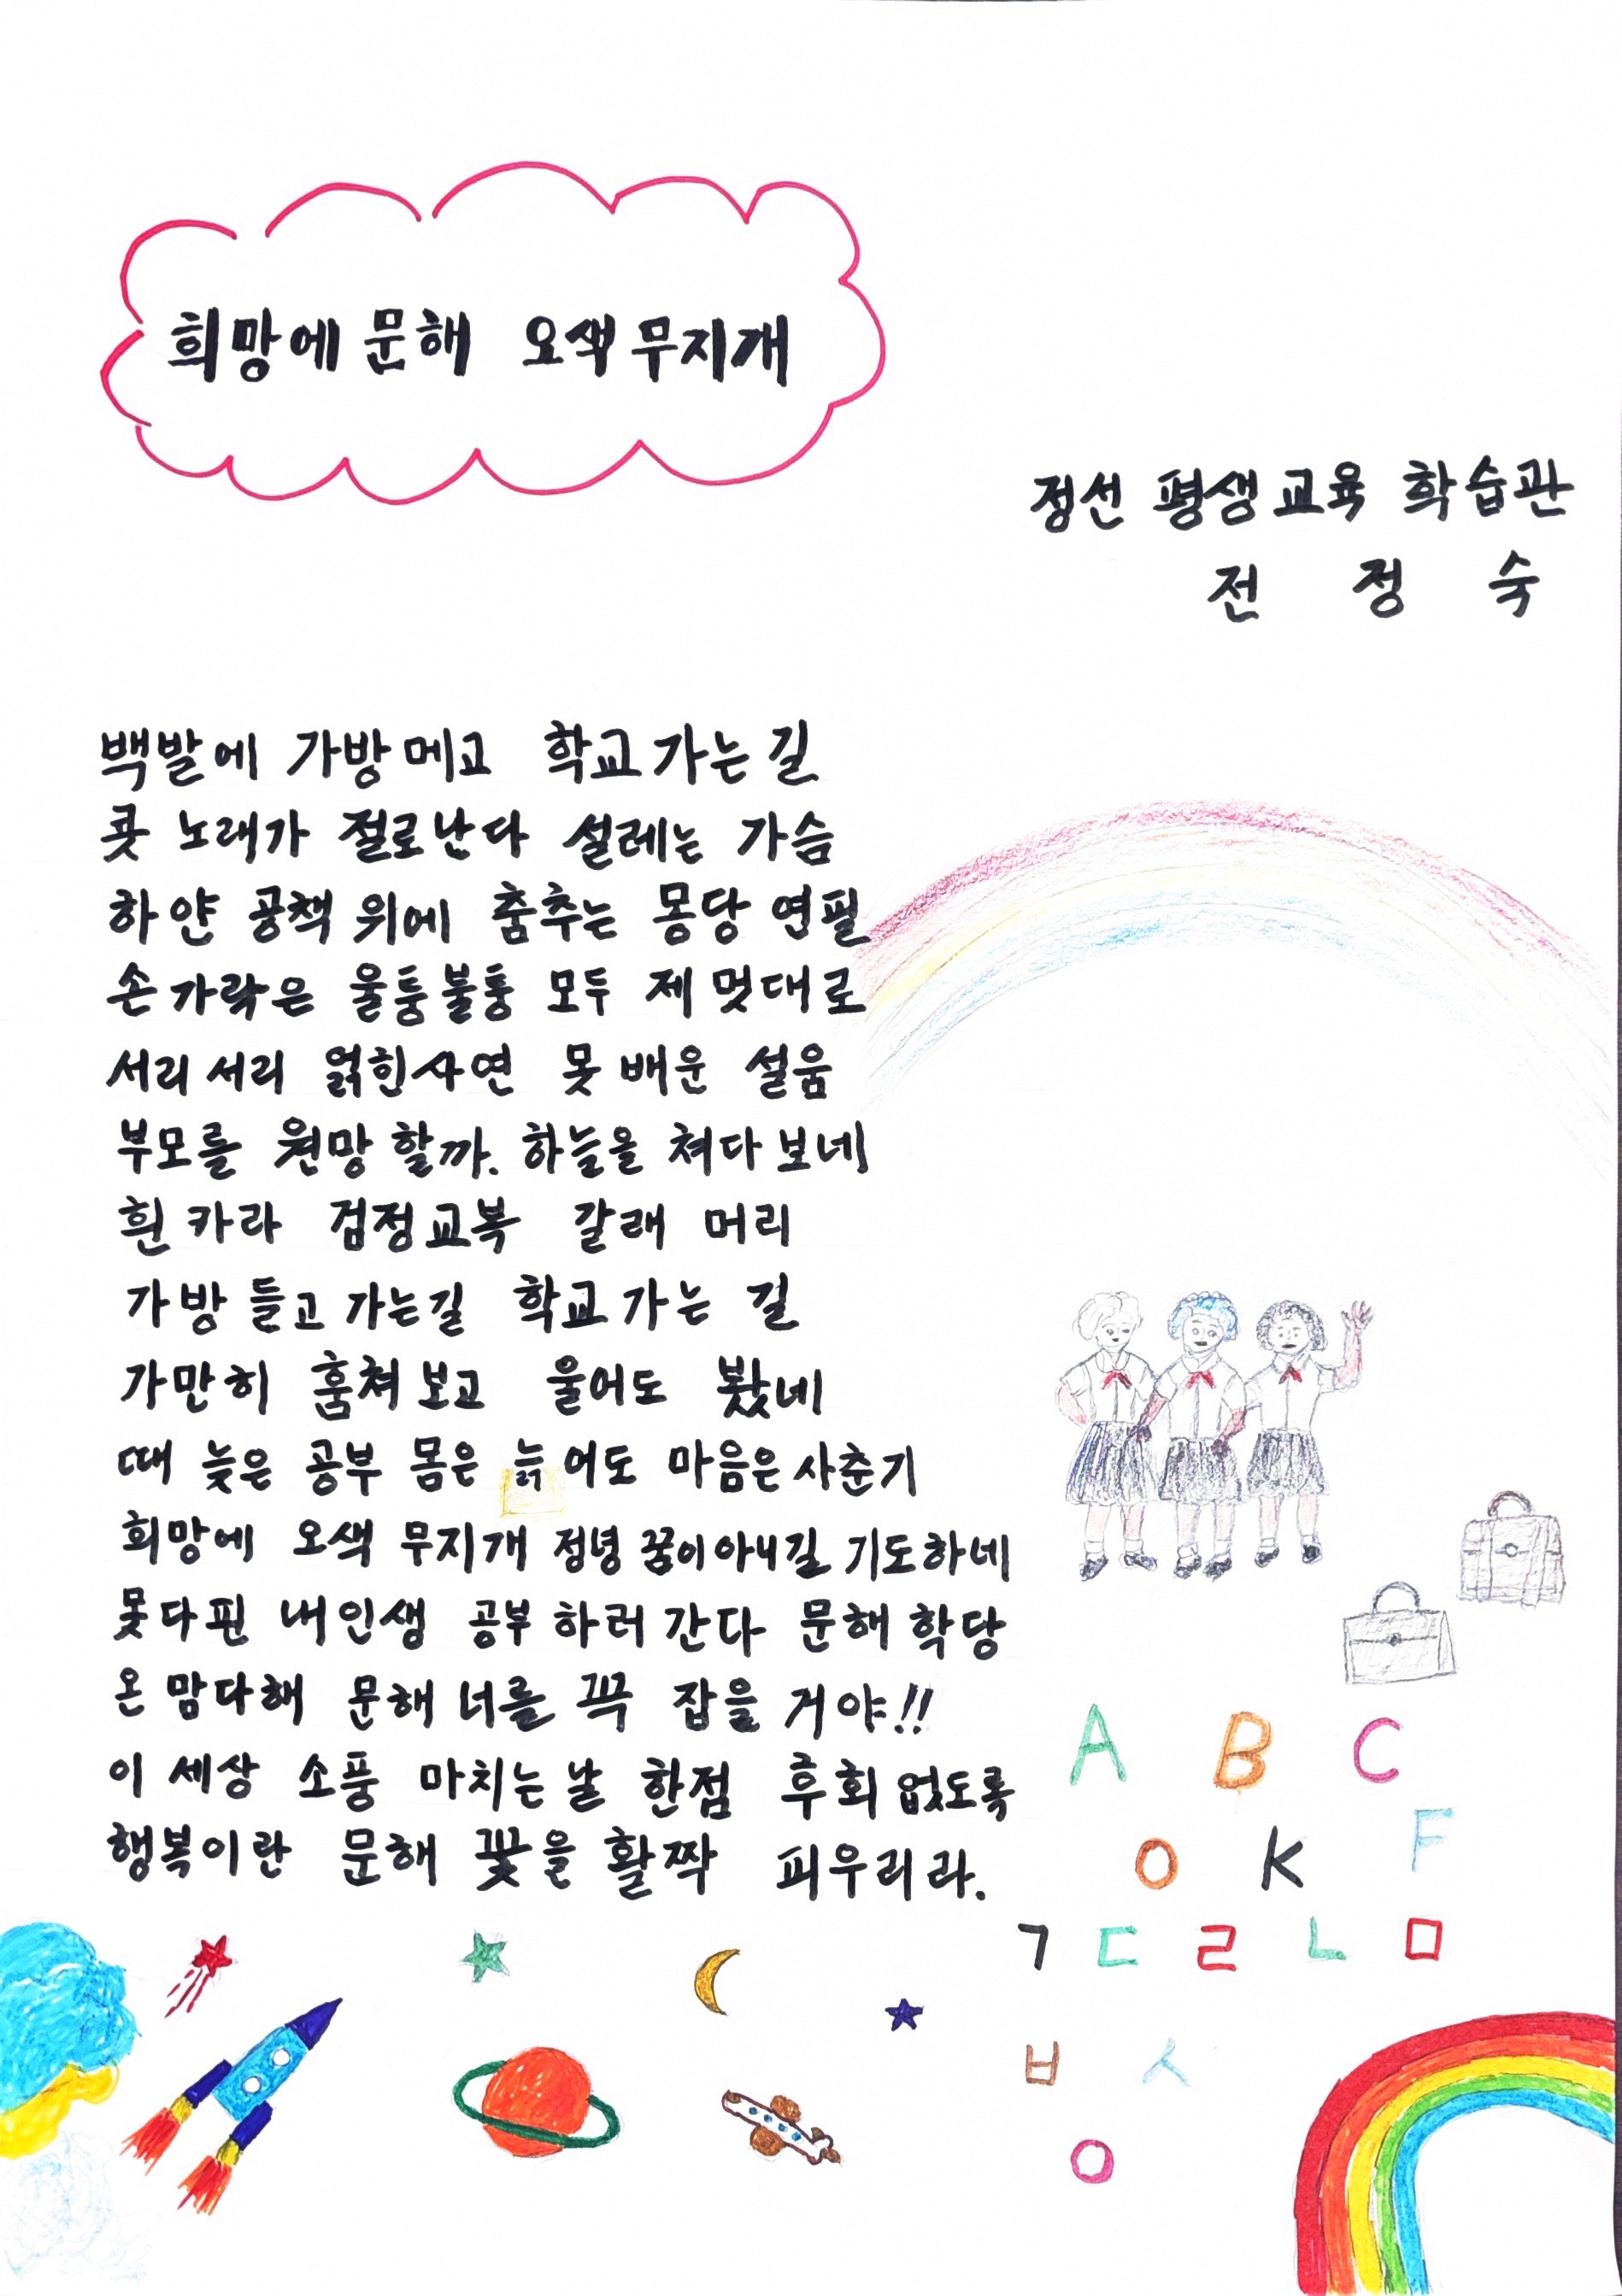 희망에 문해 오색 무지개
정선 평생교육 학습관
전 정 숙
백발에 가방메고 학교 가는 길
콧 노래가 절로난다 설레는 가슴
하얀 공책 위에 춤추는 몽당 연필
손가락은 울퉁불퉁 모두 제 멋대로
서리서리 얽힌사연 못 배운 설움
부모를 원망 할까. 하늘을 쳐다 보네
흰 카라 검정교복 갈래 머리
가방 들고 가는길 학교 가는 길
가만히 훔쳐보고 울어도 봤네
때 늦은 공부 몸은 늙어도 마음은 사춘기
희망에 오색 무지개 정녕 꿈이아내길 기도하네
못다핀 내인생 공부 하러 간다 문해 학당
온 맘다해 문해 너를 꼭 잡을 거야!!
이 세상 소풍 마치는 날 한점 후회 없도록
행복이란 문해 꽃을 활짝 피우리라.
A B C
O K F
ㄱ ㄷ ㄹ ㄴ ㅁ
ㅂ ㅅ
ㅇ